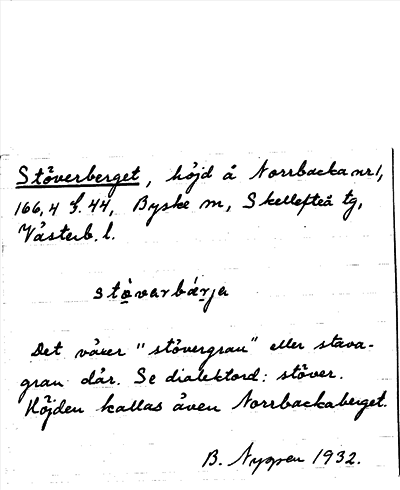 Stöverberget, höjd å Norrbacka nr 1,
166,4 f. 44, Byske sn, Skellefteå tg,
Västerb. l.
stövarbärja
Det växer "stövergran" eller stava-
gran där. Se dialektord: stöver.
Höjden kallas även Norrbackaberget.
B. 1932.